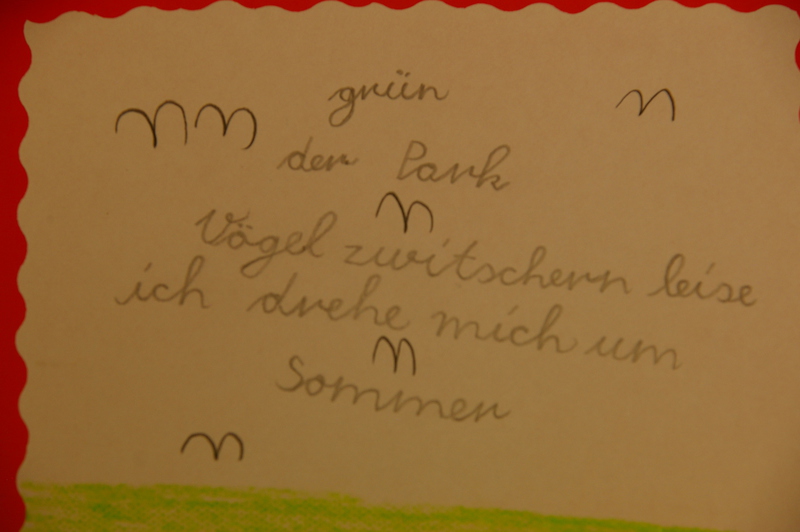 grün
der Park
Vögel zwitschern leise
ich drehe mich um
Sommer